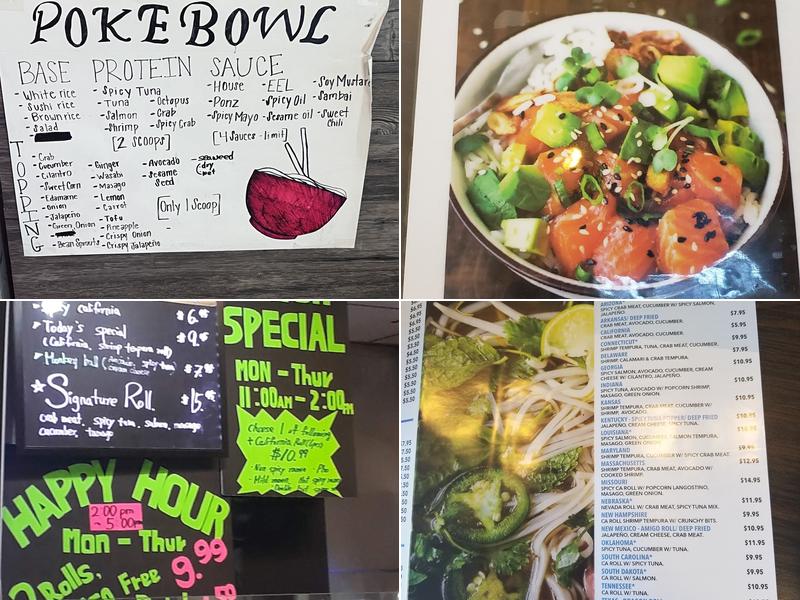 POKEBOWL
BASE PROTEIN SAUCE
- White rice
- Sushi rice
- Brown rice
- Salad
- Spicy Tuna
- Tuna - Octopus
- Salmon - Crab
- Shrimp - Spicy Crab
[2 SCOOPS]
- House - EEL - Soy Mustard
- Ponz - Spicy Oil - Sambai
- Spicy Mayo - Sesame oil - Sweet Chili
[4 Sauces - limit]
TOPPING
- Crab
- Cucumber
- Cilantro
- Sweet Corn
- Edamame
- Onion
- Jalapeño
- Green Onion
- Bean Sprouts
- Ginger
- Wasabi
- Masago
- Lemon
- Carrot
- Tofu
- Pineapple
- Crispy Onion
- Crispy Jalapeño
- Avocado
- Sesame Seed
- Seaweed
[Only 1 Scoop]
California
Today's special
(California, shrimp tempura roll)
Signature Roll.
Crab meat, spicy tuna, salmon, masago
cucumber,
SPECIAL
MON - Thur
11:00AM - 2:00PM
Choose 1 of following
+ California Roll
$10.99
HAPPY HOUR
2:00 pm
- 5:00pm
Mon - Thur
9.99
Rolls.
Free
$6.95
$6.95
$5.50
$5.50
$5.50
$5.50
$5.50
ARIZONA*
SPICY CRAB MEAT, CUCUMBER W/ SPICY SALMON,
JALAPEÑO.
ARKANSAS/ DEEP FRIED $7.95
CRAB MEAT, AVOCADO, CUCUMBER.
CALIFORNIA $5.95
CRAB MEAT, AVOCADO, CUCUMBER.
CONNECTICUT* $9.95
SHRIMP TEMPURA, TUNA, CRAB MEAT, CUCUMBER.
DELAWARE $7.95
SHRIMP, CALAMARI & CRAB TEMPURA.
GEORGIA $10.95
SPICY SALMON, AVOCADO, CUCUMBER, CREAM
CHEESE W/ CILANTRO, JALAPEÑO.
INDIANA $10.95
SPICY TUNA, AVOCADO W/ POPCORN SHRIMP,
MASAGO, GREEN ONION.
KANSAS $10.95
SHRIMP TEMPURA, CRAB MEAT, CUCUMBER W/
SHRIMP, AVOCADO.
KENTUCKY - SPICY TUNA POPPER/ DEEP FRIED $10.95
JALAPEÑO, CREAM CHEESE, SPICY TUNA.
LOUISIANA*
SPICY SALMON, CUCUMBER, SALMON TEMPURA,
MASAGO, GREEN ONION.
MARYLAND $9.95
SHRIMP TEMPURA, CUCUMBER W/ SPICY CRAB MEAT.
MASSACHUSETTS $12.95
SHRIMP TEMPURA, CRAB MEAT, AVOCADO W/
COOKED SHRIMP.
MISSOURI $14.95
SPICY CA ROLL W/ POPCORN LANGOSTINO,
MASAGO, GREEN ONION.
NEBRASKA* $11.95
NEVADA ROLL W/ CRAB MEAT, SPICY TUNA MIX.
NEW HAMPSHIRE $9.95
CA ROLL SHRIMP TEMPURA W/ CRUNCHY BITS.
NEW MEXICO - AMIGO ROLL/ DEEP FRIED $10.95
JALAPEÑO, CREAM CHEESE, CRAB MEAT.
OKLAHOMA* $11.95
SPICY TUNA, CUCUMBER W/ TUNA.
SOUTH CAROLINA* $9.95
CA ROLL W/ SPICY TUNA.
SOUTH DAKOTA* $9.95
CA ROLL W/ SALMON.
TENNESSEE* $10.95
CA ROLL W/ TUNA.